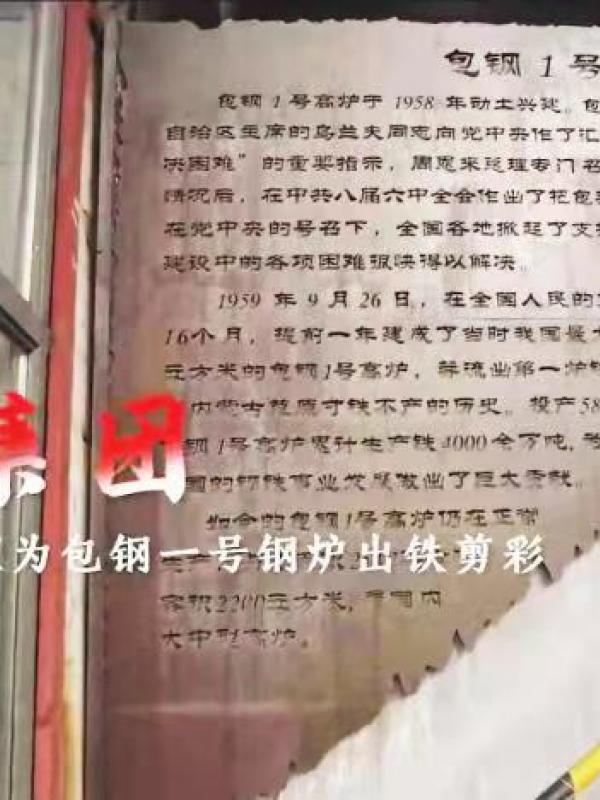 包钢1号
包钢1号高炉于1958年动土兴建。包
自治区主席的乌兰夫同志向党中央作了汇
决困难”的重要指示，周恩来总理专门召
情况后，在中共八届六中全会作出了把包
在党中央的号召下，全国各地掀起了支
建设中的各项困难很快得以解决。
1959年9月26日，在全国人民的
16个月，提前一年建成了当时我国最大
立方米的包钢1号高炉，并流出第一炉铁
内蒙古草原寸铁不产的历史。投产58
钢1号高炉累计生产铁4000余万吨，
国的钢铁事业发展做出了巨大贡献。
集团
如今的包钢1号高炉仍在正常
为包钢一号钢炉出铁剪彩
容积2200立方米，是国内
大中型高炉。